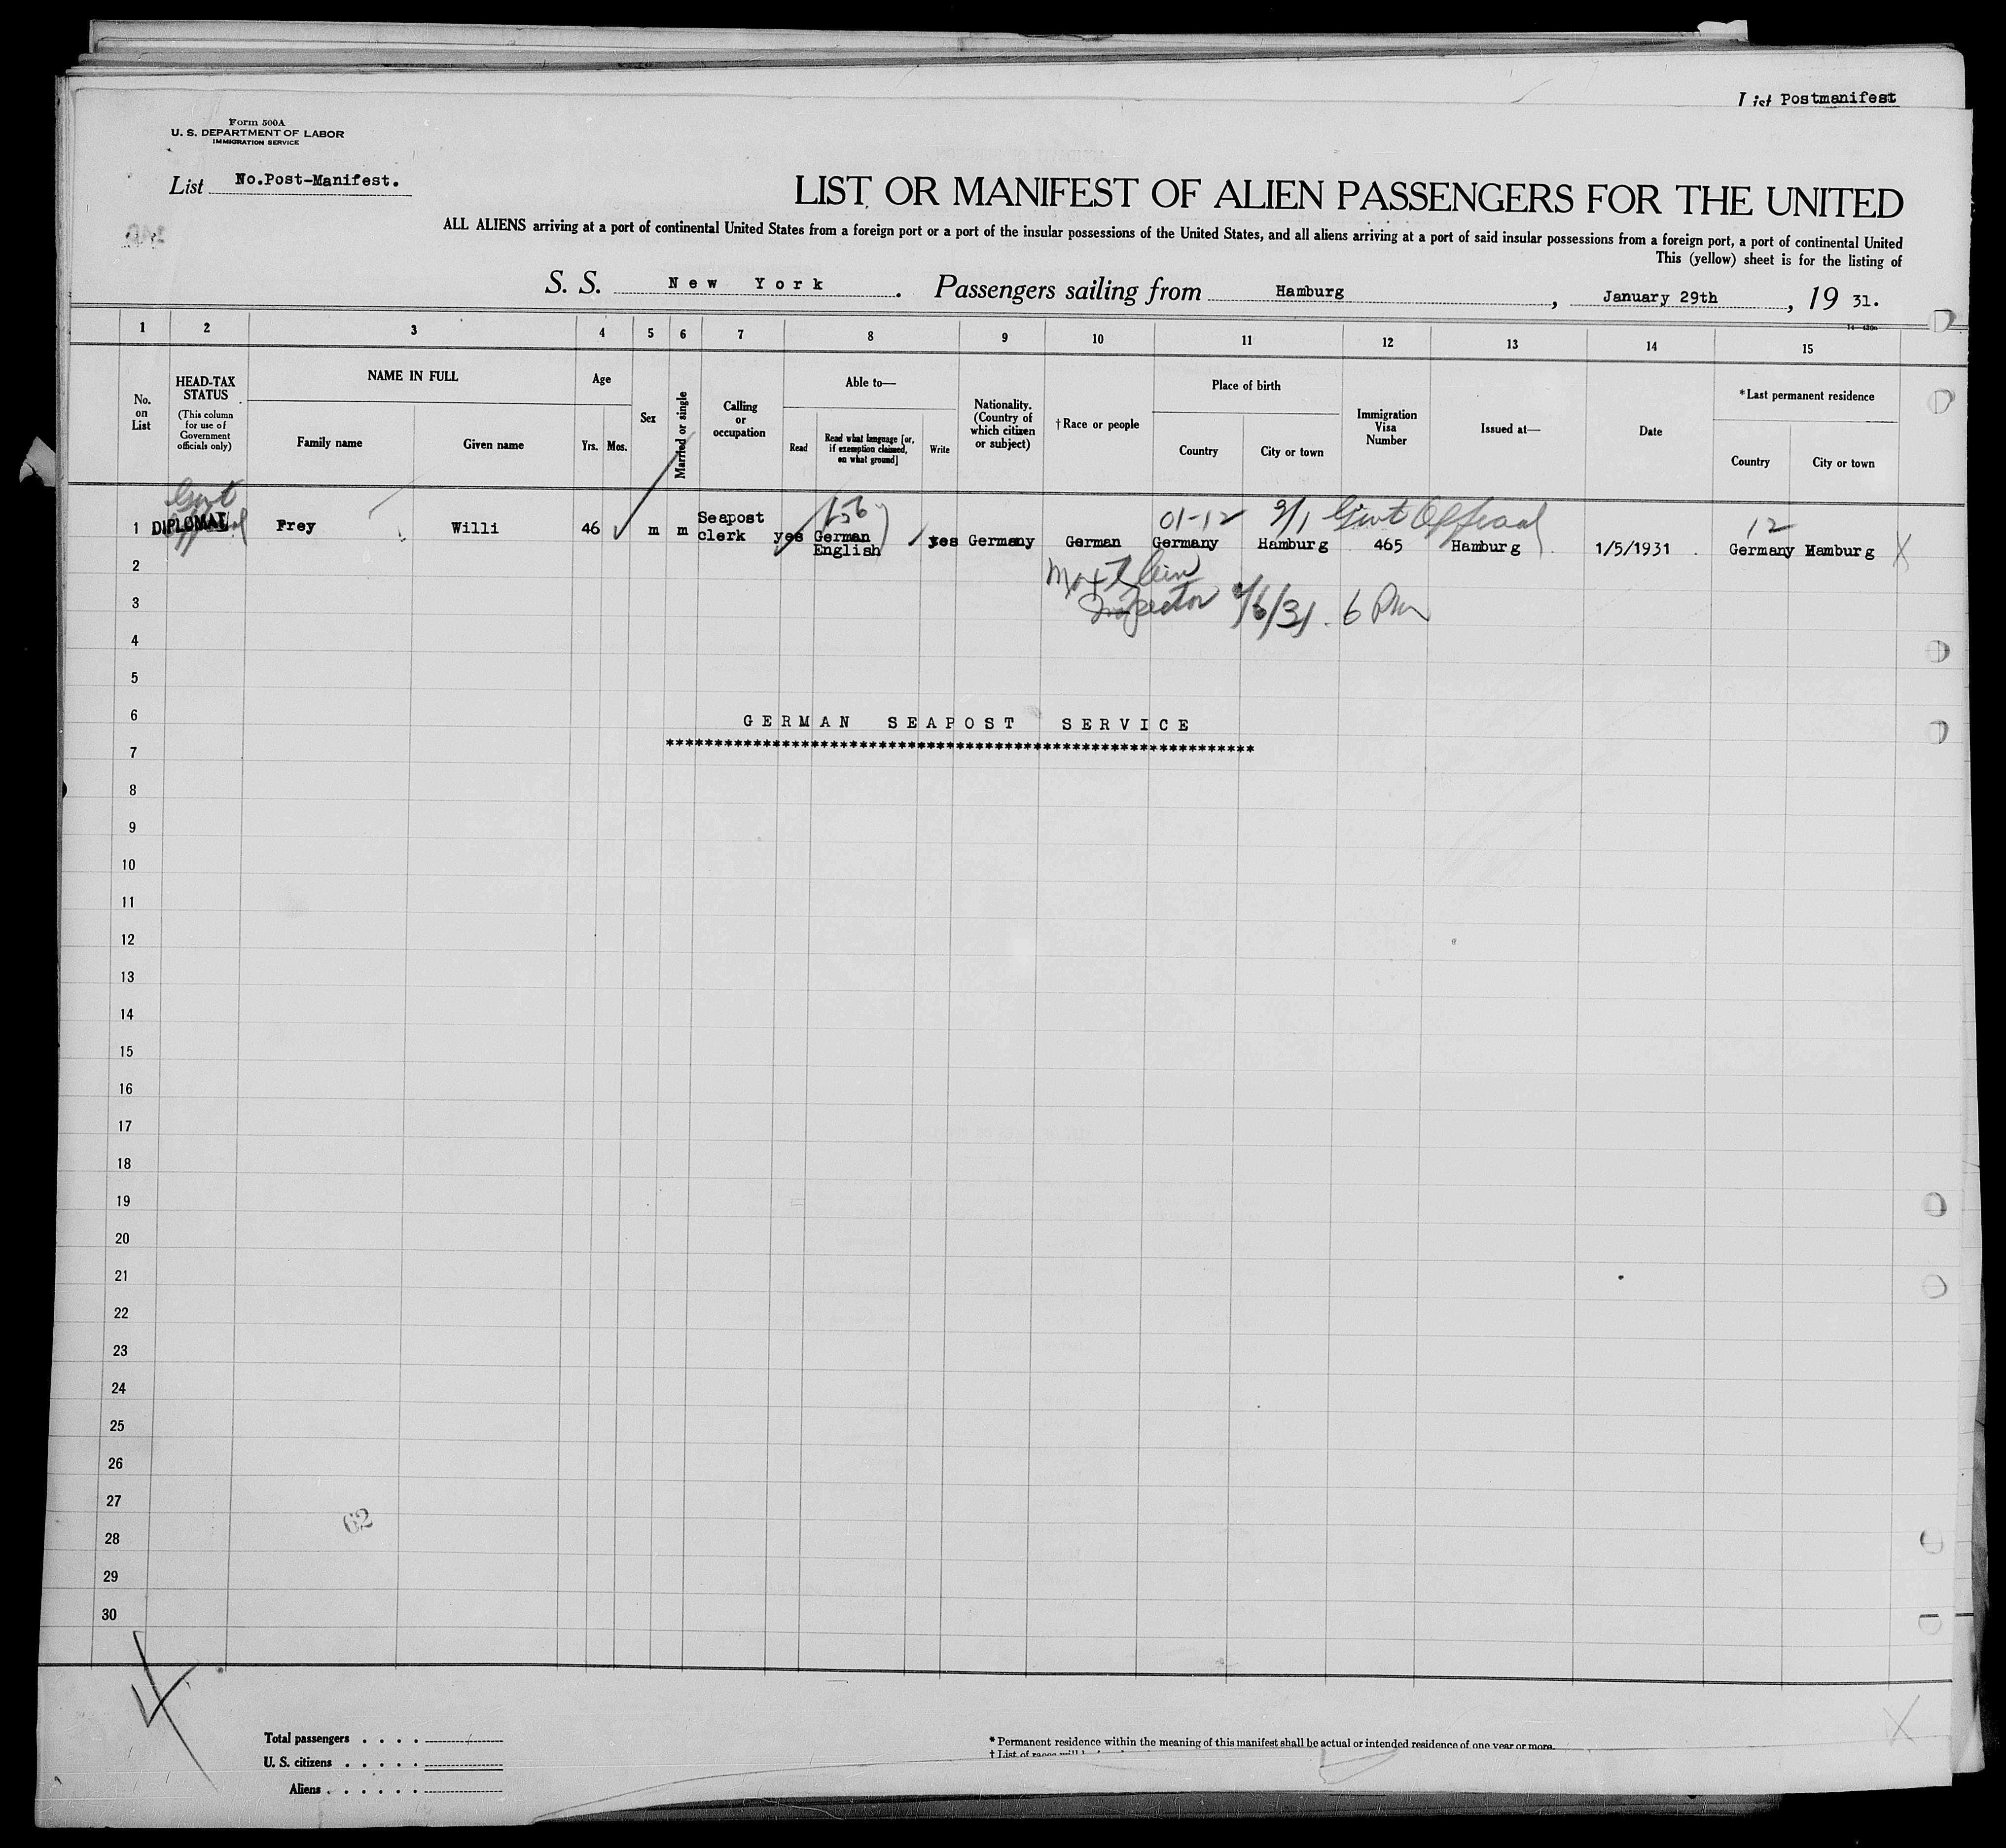 List Postmanifest
Form 500A
U. S. DEPARTMENT OF LABOR
IMMIGRATION SERVICE
List No.Post-Manifest.
LIST OR MANIFEST OF ALIEN PASSENGERS FOR THE UNITED
ALL ALIENS arriving at a port of continental United States from a foreign port or a port of the insular possessions of the United States, and all aliens arriving at a port of said insular possessions from a foreign port, a port of continental United
This (yellow) sheet is for the listing of
S. S. New York. Passengers sailing from Hamburg, January 29th, 19 31.
1 2 3 4 5 6 7 8 9 10 11 12 13 14 15
No. on List
HEAD-TAX STATUS
(This column for use of Government officials only)
NAME IN FULL
Family name Given name
Age
Yrs. Mos.
Sex
Married or single
Calling or occupation
Able to—
Read
Read what language [or, if exemption claimed, on what ground]
Write
Nationality. (Country of which citizen or subject)
†Race or people
Place of birth
Country City or town
Immigration Visa Number
Issued at—
Date
*Last permanent residence
Country City or town
Govt Official
01-12 3/1 Govt Official 12
1 DIPLOMAT Frey Willi 46 m m Seapost clerk yes German English yes Germany German Germany Hamburg 465 Hamburg 1/5/1931 Germany Hamburg X
2
Inspector 2/6/31. 6 Pm
3
4
5
6
GERMAN SEAPOST SERVICE
7
*************************************************************
8
9
10
11
12
13
14
15
16
17
18
19
20
21
22
23
24
25
26
27
62
28
29
30
X
Total passengers . . . .
U. S. citizens . . . . .
Aliens . . . . . .
* Permanent residence within the meaning of this manifest shall be actual or intended residence of one year or more.
† List of races will be